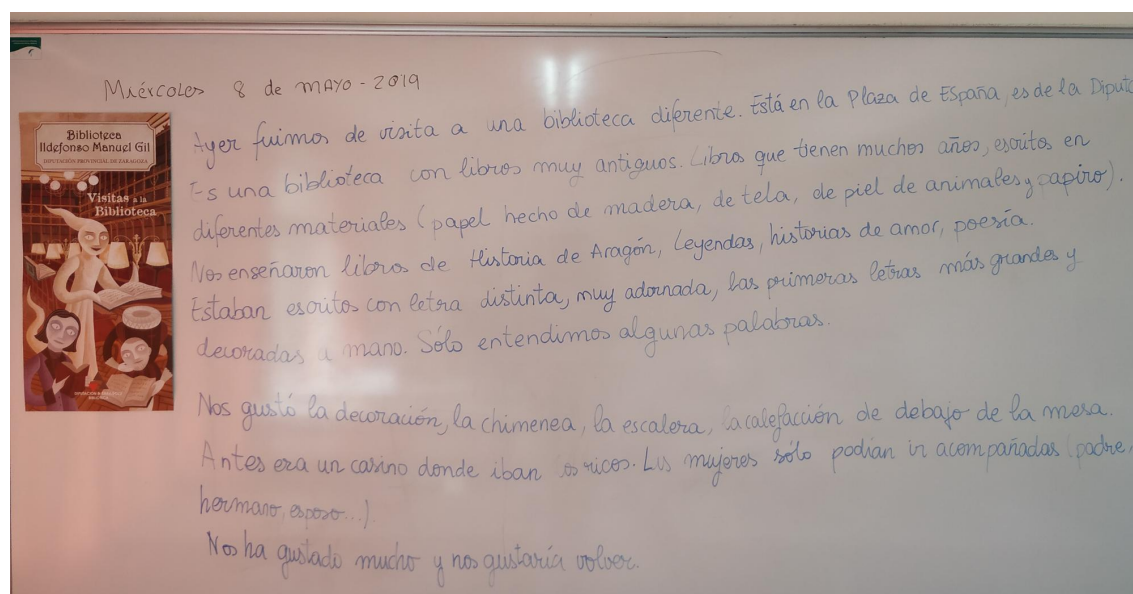 Miércoles 8 de MAYO - 2019
Biblioteca
Ildefonso Manuel Gil
DIPUTACIÓN PROVINCIAL DE ZARAGOZA
Visitas a la
Biblioteca
Ayer fuimos de visita a una biblioteca diferente. Está en la Plaza de España, es de la Diputa
Es una biblioteca con libros muy antiguos. Libros que tienen muchos años, escritos en
diferentes materiales (papel hecho de madera, de tela, de piel de animales y papiro).
Nos enseñaron libros de Historia de Aragón, Leyendas, historias de amor, poesía.
Estaban escritos con letra distinta, muy adornada, las primeras letras más grandes y
decoradas a mano. Sólo entendimos algunas palabras.
Nos gustó la decoración, la chimenea, la escalera, la calefacción de debajo de la mesa.
Antes era un casino donde iban los ricos. Las mujeres sólo podían ir acompañadas (padre,
hermano, esposo...).
Nos ha gustado mucho y nos gustaría volver.